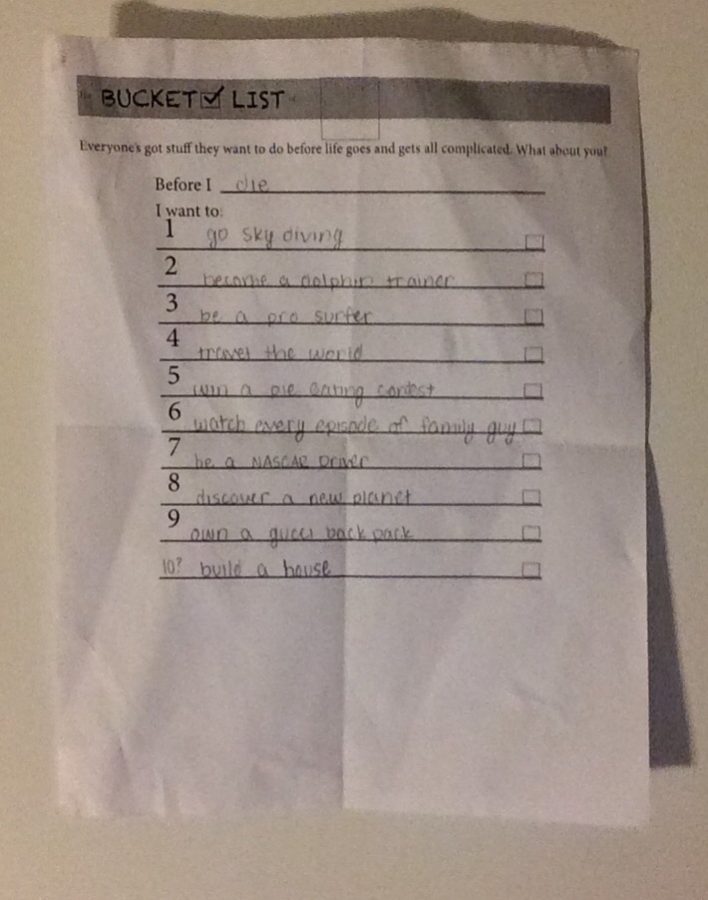 BUCKET LIST
Everyone's got stuff they want to do before life goes and gets all complicated. What about you?
Before I die
I want to:
1 go sky diving
2 become a dolphin trainer
3 be a pro surfer
4 travel the world
5 win a pie eating contest
6 watch every episode of family guy
7 be a NASCAR Driver
8 discover a new planet
9 own a gucci back pack
10? build a house